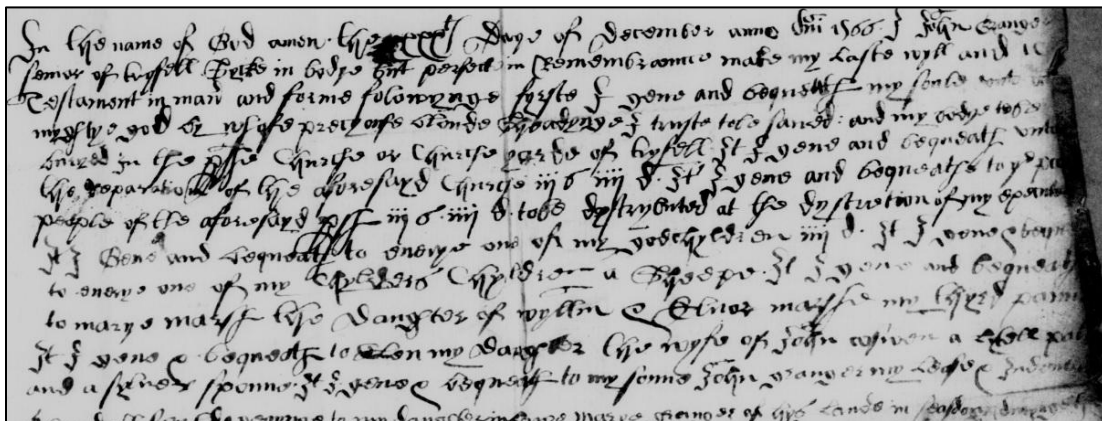 In the name of God amen the xxxth Daye of December anno dni 1566 I John Granger
senior of tysfell Sycke in bodye but perfect in Remembraunce make my Laste wyll and
Testament in man and forme folowynge fyrste I geve and bequeath my soule unto
myghtye god by whose precyouse bloude sheadynge I truste to be saved: and my bodye to be
buryed in the pshe Churche or Churche yarde of tysfell. It I geve and bequeath unto
the reparations of the aforesayd Churche iij s iiij d. It I geve and bequeathe to ye
people of the aforesayd psh iij s iiij d to be dystrybuted at the dyscretion of my
It I Geve and bequeath to everye one of my godchyldren iiij d. It I geve &
to everye one of my Chylders Chyldren a Sheepe. It I geve and bequeath
to marye marsh the daughter of wyllm & Elinor marshe my thyrd
It I geve & bequeath to Elen my daughter the wyfe of John a
and a sylver spoune. It I geve & bequeath to my sonne John granger my Lease &
to my daughter in Lawe marye Granger of hys Lands in